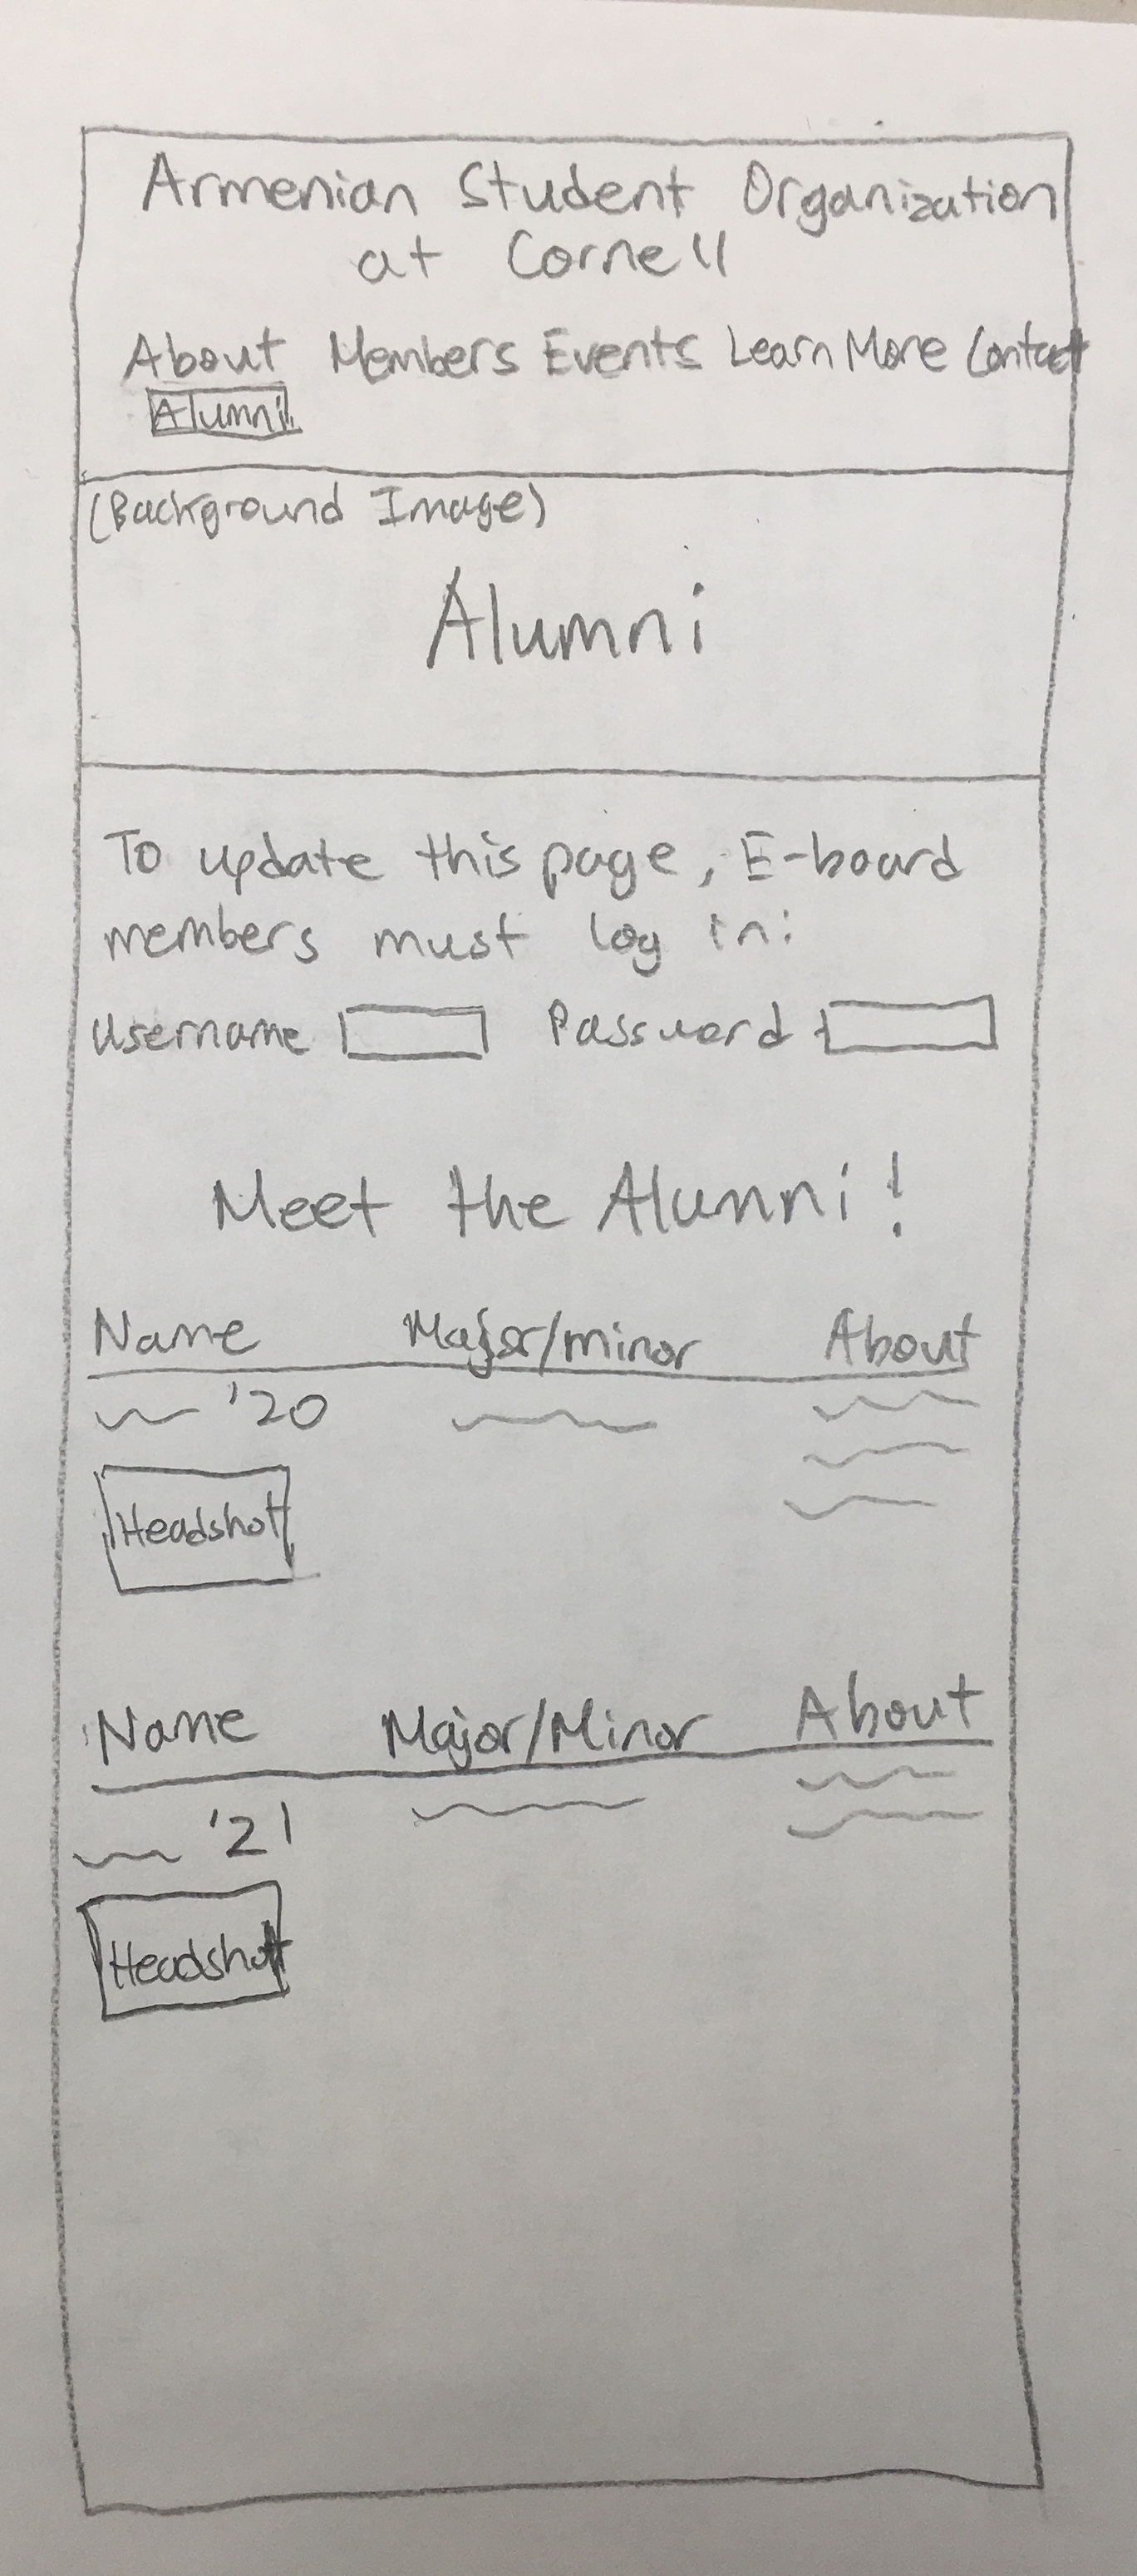 Armenian Student Organization
at Cornell
About Members Events Learn More Contact
Alumni
(Background Image)
Alumni
To update this page, E-board
members must log in:
Username Password
Meet the Alumni!
Name Major/minor About
'20
Headshot
Name Major/Minor About
'21
Headshot